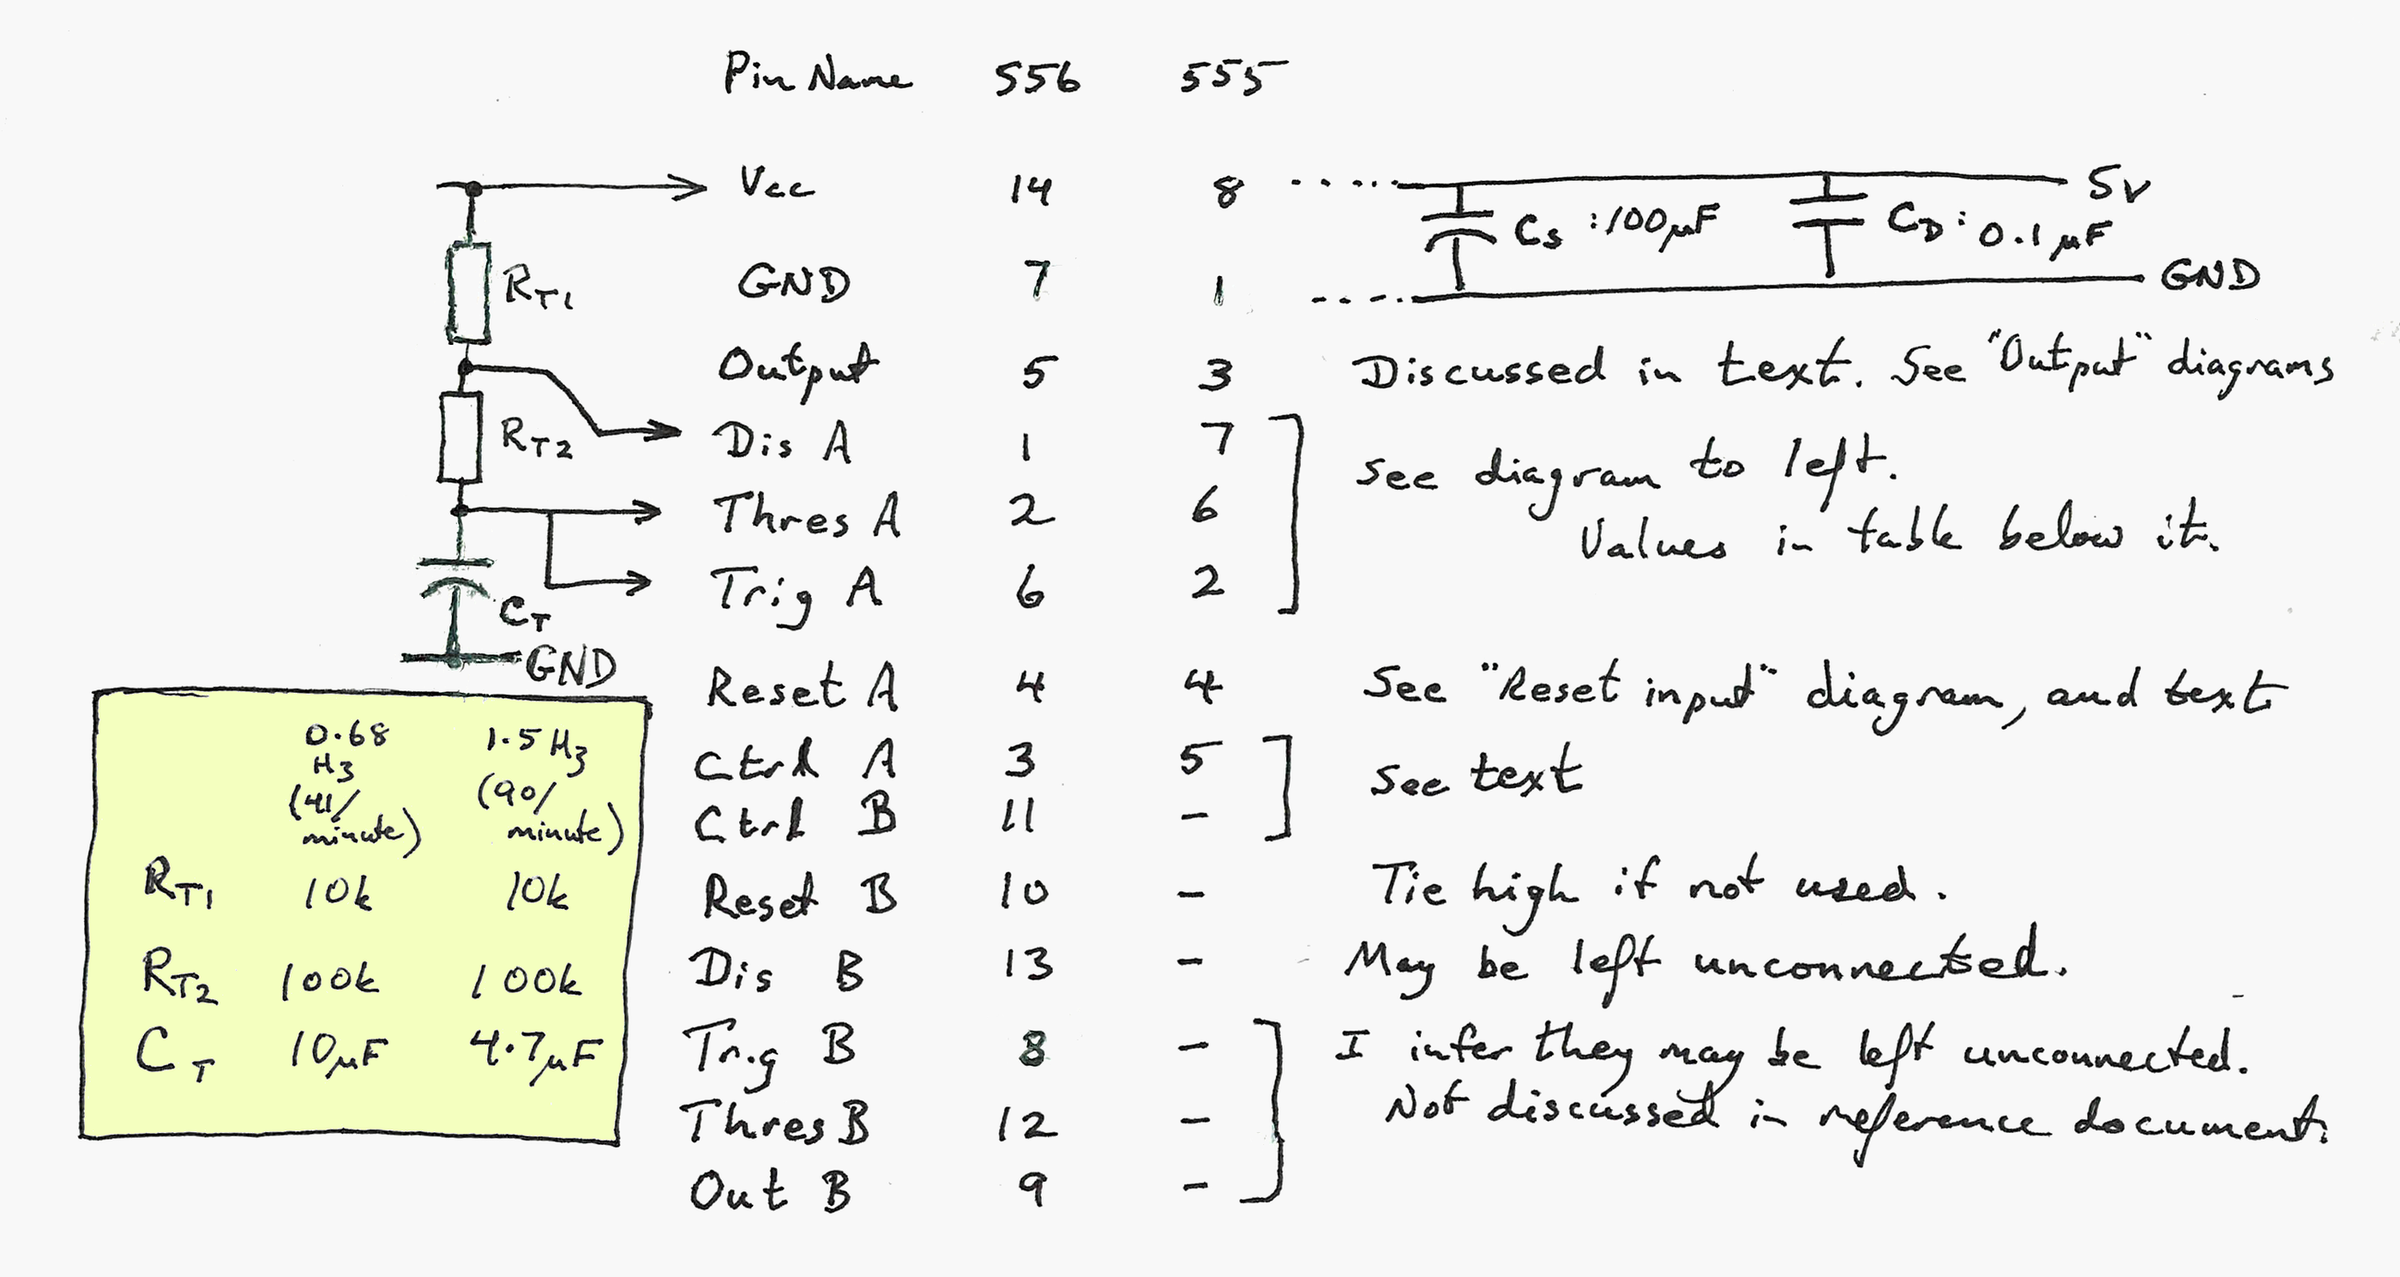 Pin Name 556 555
Vcc 14 8 5V
Cs : 100µF CD : 0.1µF
RT1 GND 7 1 GND
Output 5 3 Discussed in text. See "Output" diagrams
RT2 Dis A 1 7
See diagram to left.
Thres A 2 6
Values in table below it.
CT Trig A 6 2
GND
Reset A 4 4 See "Reset input" diagram, and text
Ctrl A 3 5
See text
Ctrl B 11 -
Reset B 10 - Tie high if not used.
Dis B 13 - May be left unconnected.
Trig B 8 - I infer they may be left unconnected.
Thres B 12 - Not discussed in reference document.
Out B 9 -
0.68 1.5 Hz
Hz
(41/ (90/
minute) minute)
RT1 10k 10k
RT2 100k 100k
CT 10µF 4.7µF